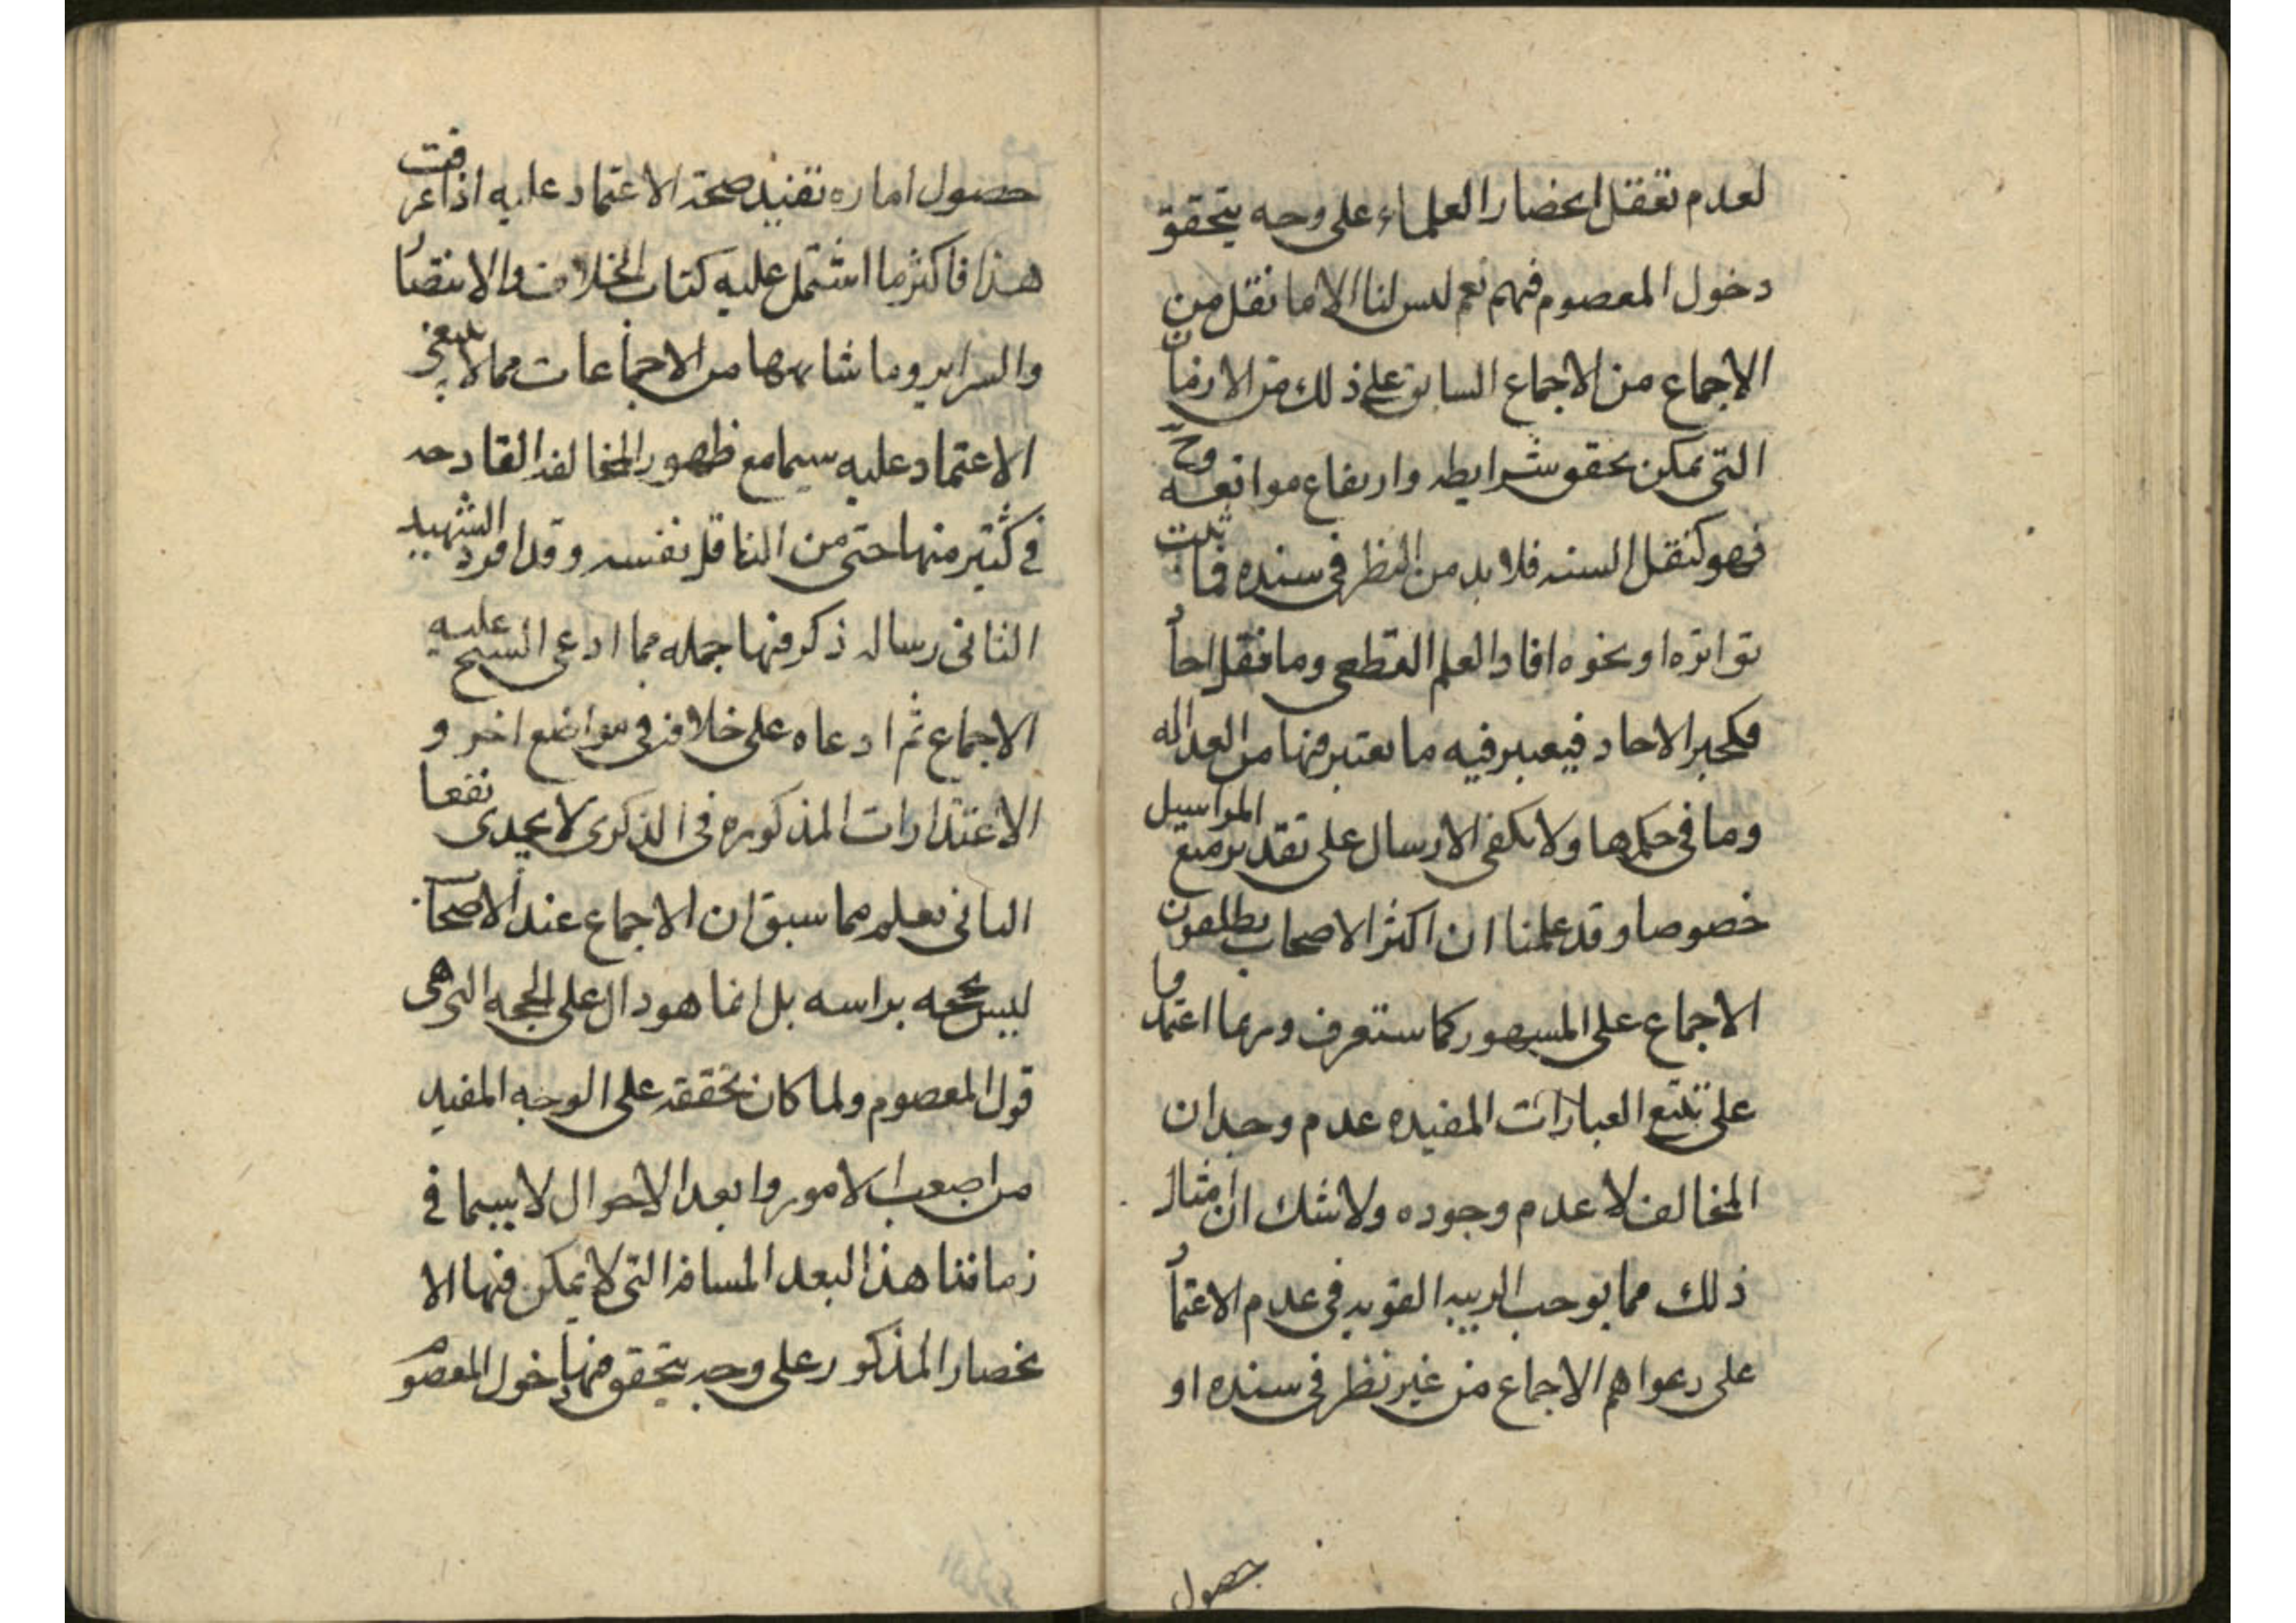 لعدم تعقل انحضار العلماء على وجه يتحقق
دخول المعصوم فيهم نعم ليس لنا الا ما نقل من
الاجماع من الاجماع السابق على ذلك من الازمان
التى يمكن تحقق شرايطه وارتفاع موانعه وح
فهو كنقل السنه فلا بد من النظر فى سنده فما ثبت
تواتره او نحوه افاد العلم القطعى وما نقل احاد
فكخبر الاحاد فيعتبر فيه ما يعتبر فيها من العداله
وما فى حكمها ولا يكفى الارسال على تقدير منع المراسيل
خصوصا وقد علمنا ان اكثر الاصحاب يطلقون
الاجماع على المسهور كما ستعرف وربما اعتمدوا
على تتبع العبارات المفيده عدم وجدان
المخالف لا عدم وجوده ولا شك ان امثال
ذلك مما يوجب الريبه القويه فى عدم الاعتماد
على دعواهم الاجماع من غير نظر فى سنده او
حصول
حصول اماره تفيد صحة الاعتماد عليه اذا عرفت
هذا فاكثر ما اشتمل عليه كتاب الخلاف والانتصار
والسراير وما شابهها من الاجماعات مما لا ينبغى
الاعتماد عليه سيما مع ظهور المخالفه القادحه
فى كثير منها حتى من الناقل نفسه وقد افرد الشهيد
الثانى رساله ذكر فيها جمله مما ادعى الشيخ عليه
الاجماع ثم ادعاه على خلافه فى مواضع اخر و
الاعتذارات المذكوره فى الذكرى لا يجدى نفعا
الثانى يعلم مما سبق ان الاجماع عند الاصحاب
ليس بحجه براسه بل انما هو دال على الحجه التى هى
قول المعصوم ولما كان تحققه على الوجه المفيد
من اصعب الامور وابعد الاحوال لا سيما فى
زماننا هذا البعد المسافه التى لا يمكن فيها الا
نحصار المذكور على وجه يتحقق فيها دخول المعصوم